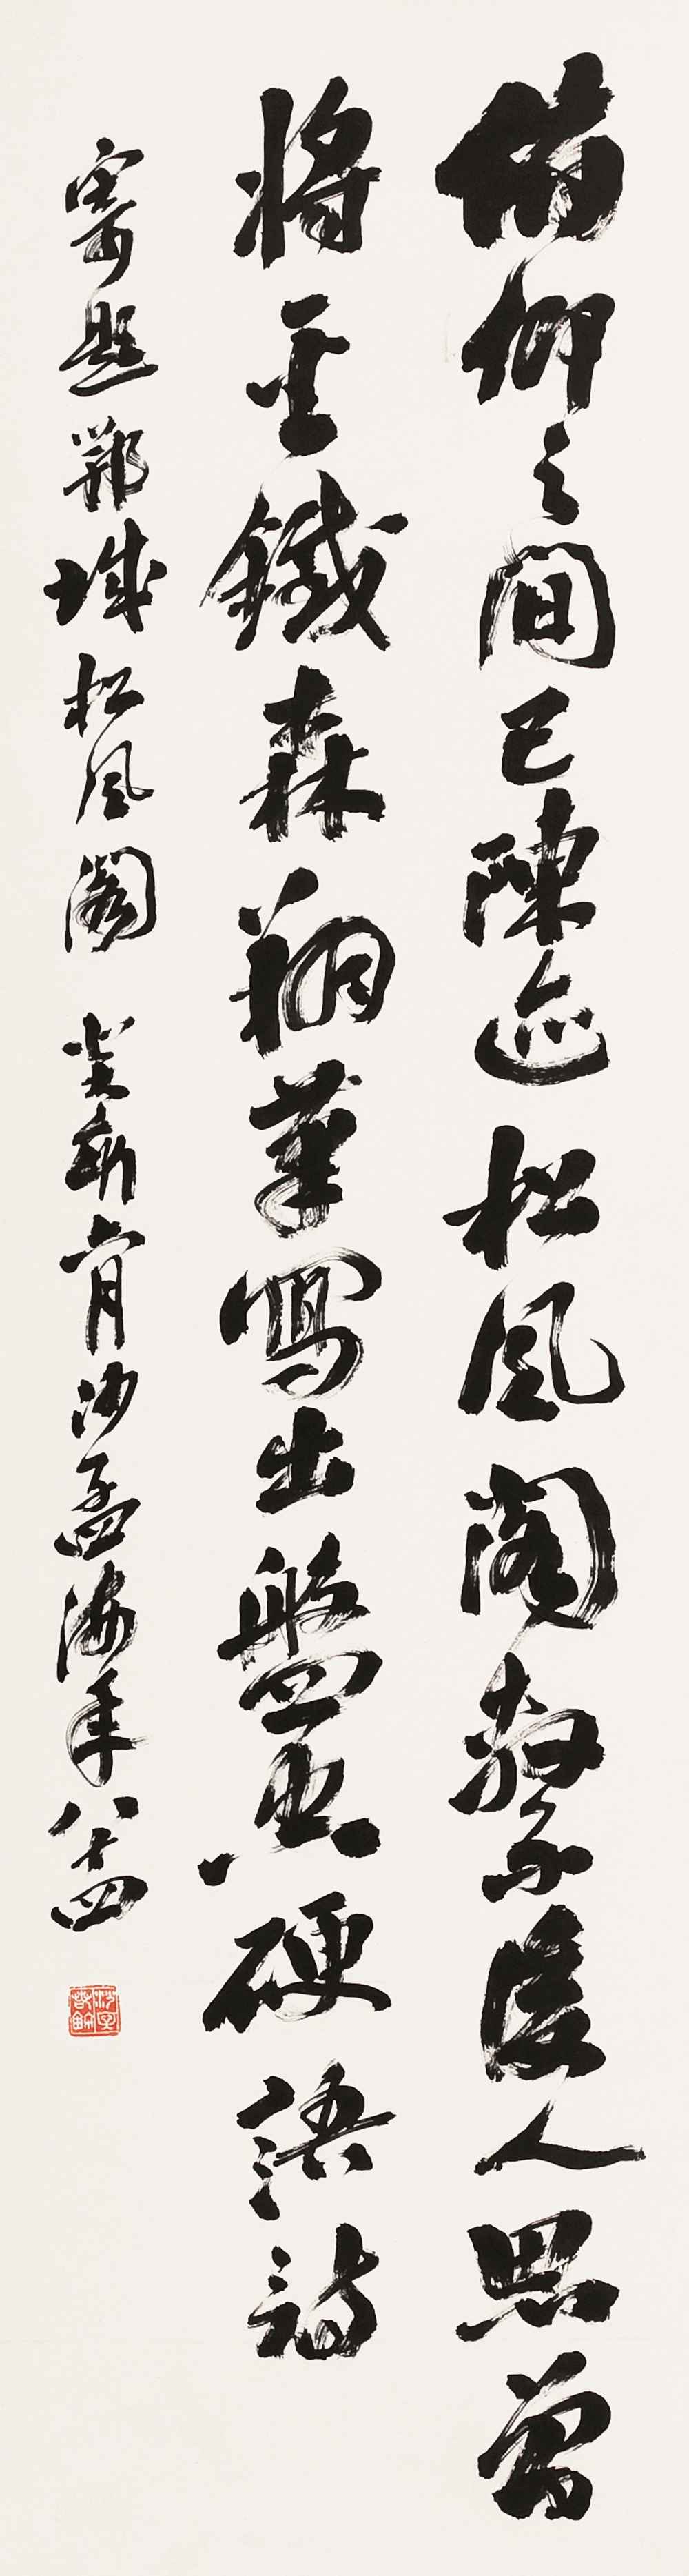 俯仰之間已陳迹松風閣繫後人思曾
將金鐵森翔筆寫出盤空硬語詩
寄題鄂城松風閣 癸亥六月沙孟海年八十四